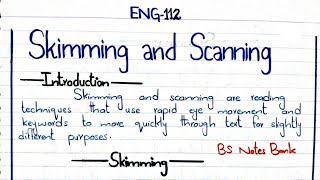 ENG-112
Skimming and Scanning
Introduction
Skimming and scanning are reading
techniques that use rapid eye movement and
keywords to move quickly through text for slightly
different purposes.
BS Notes Bank
Skimming